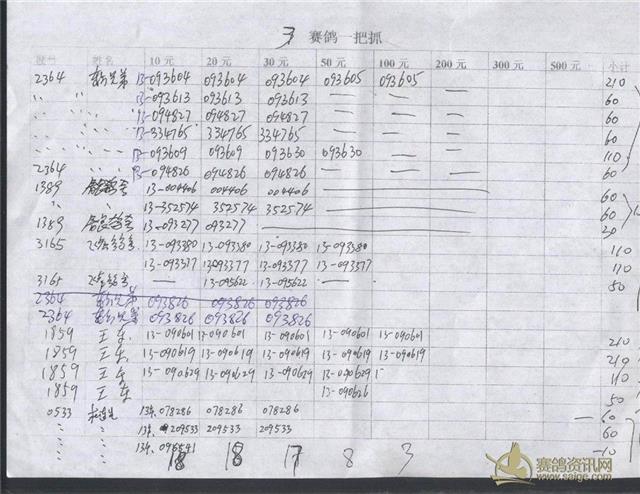 3 赛鸽一把抓
姓名 10元 20元 30元 50元 100元 200元 300元 500元 小计
2364 13-093604 093604 093604 093605 093605 210
〃 〃 13-093613 093613 093613 — — — 60
〃 〃 13-094827 094827 094827 — — — 60
〃 〃 13-334765 334765 334765 — — — 60
〃 〃 13-093609 093609 093630 093630 — — 110
2364 〃 〃 13-094826 094826 094826 — — — 60
1389 13-004406 004406 004406 60
〃 〃 13-352574 352574 352574 60
1389 13-093277 093277 20
3165 13-093380 13-093380 13-093380 13-093380 110
13-093377 13-093377 13-093377 13-093377 110
3165 — 13-095622 — 50
2364 093826 093826 093826
2364 093826 093826 093826
1859 王东 13-090601 13-090601 13-090601 13-090601 13-090601 210
1859 王东 13-090619 13-090619 13-090619 13-090619 13-090619 210
1859 王东 13-090629 13-090629 13-090629 13-090629 110
1859 王东 13-090626 50
0533 078286 078286 078286 60
〃 〃 209533 209533 209533 60
〃 〃 10
18 18 17 8 3
赛鸽资讯网
www.saige.com